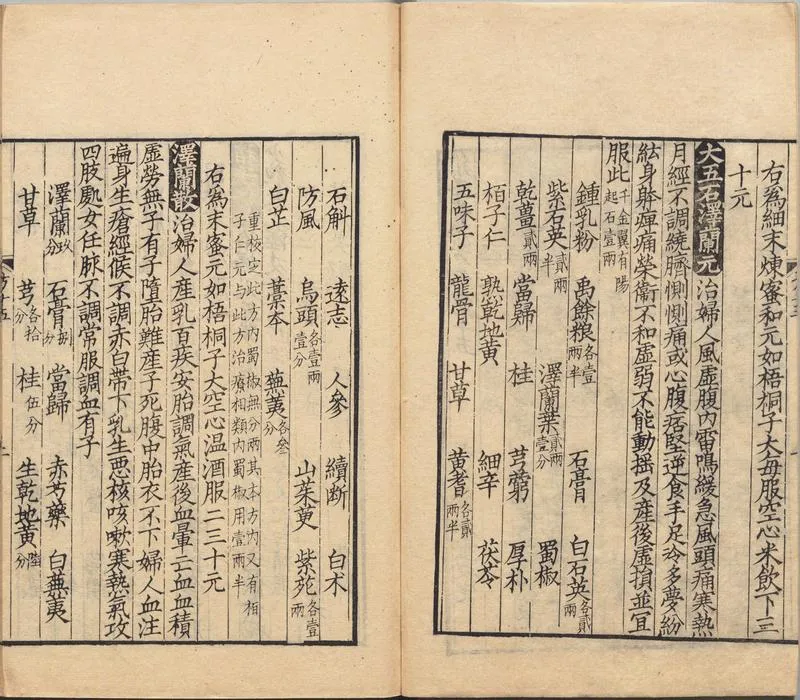 右為細末煉蜜和元如梧桐子大每服空心米飲下三
十元
大五石澤蘭元治婦人風虛腹內雷鳴緩急風頭痛寒熱
月經不調繞臍惻惻痛或心腹痞堅逆食手足冷多夢紛
紜身躰痺痛榮衞不和虛弱不能動揺及產後虛損並宜
服此千金翼有陽起石壹兩
鍾乳粉 禹餘糧各壹兩半 石膏 白石英各貳兩
紫石英貳兩半 澤蘭葉貳兩壹分 蜀椒
乾薑貳兩 當歸 桂 芎藭 厚朴
栢子仁 熟乾地黃 細辛 茯苓
五味子 龍骨 甘草 黃耆各貳兩半
石斛 遠志 人參 續斷 白朮
防風 烏頭各壹兩壹分 山茱萸 紫菀各壹兩
白芷 藁本 蕪荑各叁分
右為末蜜元如梧桐子大空心温酒服二三十元
重校定此方內蜀椒無分兩其本方內又有栢
子仁元与此方治療相類內蜀椒用壹兩半
澤蘭散治婦人產乳百疾安胎調氣產後血暈亡血血積
虛勞無子有子墮胎難產子死腹中胎衣不下婦人血注
遍身生瘡經候不調赤白帶下乳生惡核咳嗽寒熱氣攻
四肢處女任脉不調常服調血有子
澤蘭玖分 石膏捌分 當歸 赤芍藥 白蕪荑
甘草 芎各拾分 桂伍分 生乾地黃陸分